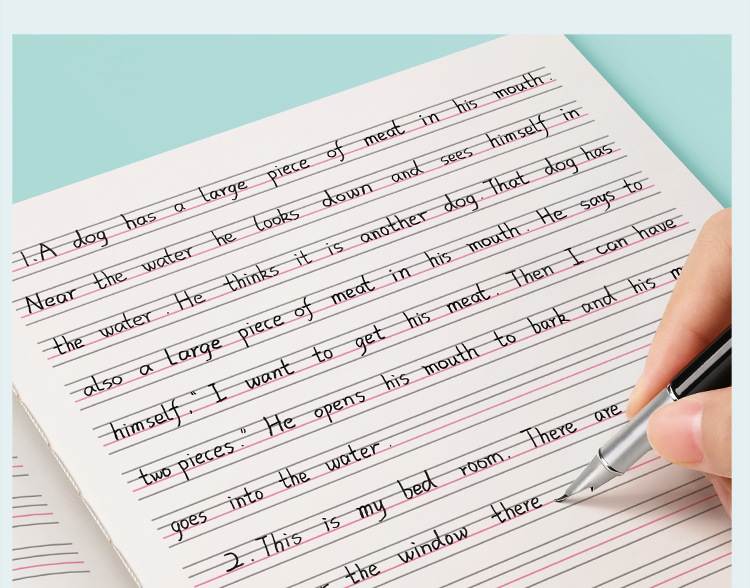 1. A dog has a large piece of meat in his mouth.
Near the water he looks down and sees himself in
the water. He thinks it is another dog. That dog has
also a large piece of meat in his mouth. He says to
himself." I want to get his meat. Then I can have
two pieces." He opens his mouth to bark and his
goes into the water.
2. This is my bed room. There are
the window there